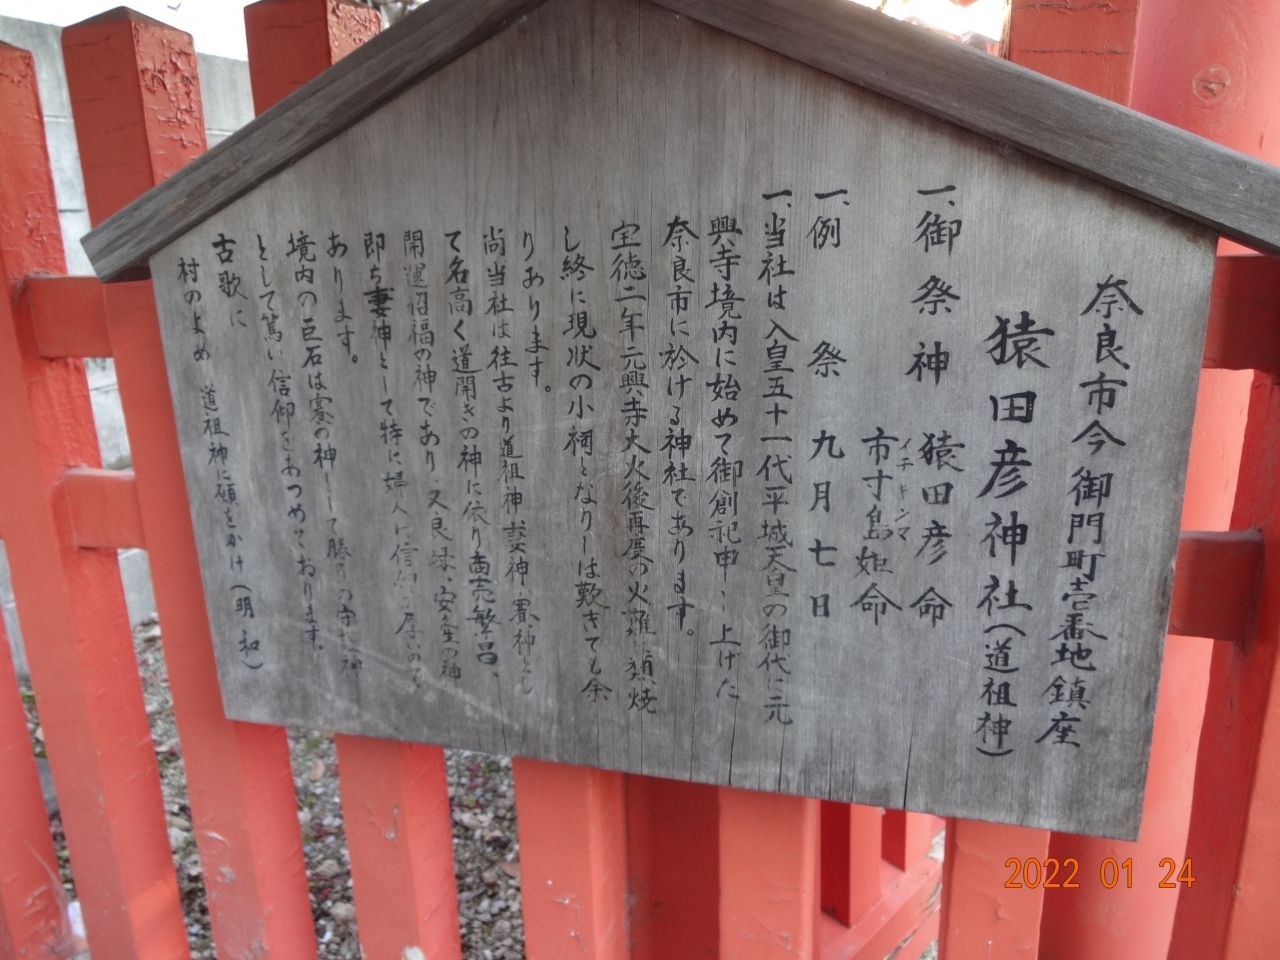 奈良市今御門町壱番地鎮座
猿田彦神社(道祖神)
一、御祭神 猿田彦命
イチキシマ
市寸島姫命
一、例 祭 九月七日
一、当社は人皇五十一代平城天皇の御代に元
興寺境内に始めて御創祀申し上げた
奈良市に於ける神社であります。
宝徳二年元興寺大火後再度の火難に類焼
し終に現状の小祠となりしは歎きても余
りあります。
尚当社は往古より道祖神
て名高く道開きの神に依り商売繁昌、
開運招福の神であり又良縁、安産の神
即ち妻神として特に婦人に信仰
あります。
境内の巨石は賽の神として
として篤い信仰をあつめております。
古歌に
村のよめ 道祖神に願をかけ(明和)
2022 01 24